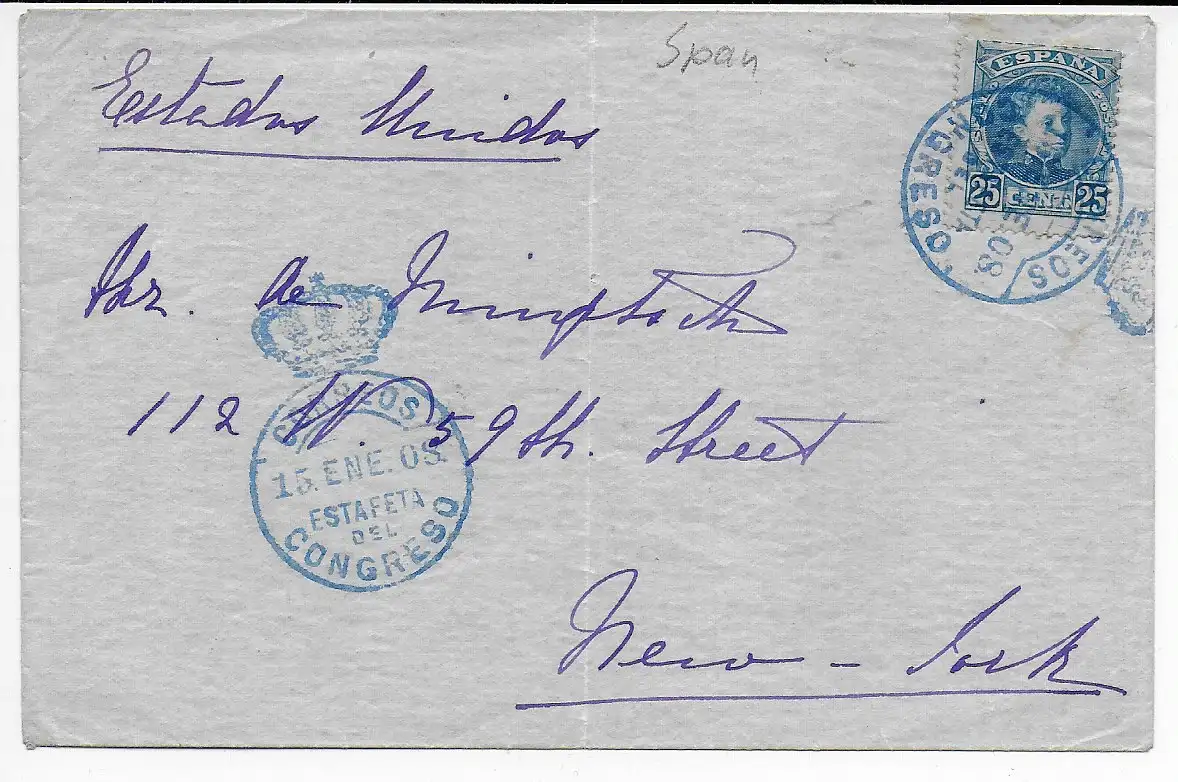 Span
Estados Unidos
ESPAÑA
25 CENT. 25
CORREOS
08
CONGRESO
Mr. de
112 W. 59th. Street
CORREOS
15. ENE. 08.
ESTAFETA
DEL
CONGRESO
New-York